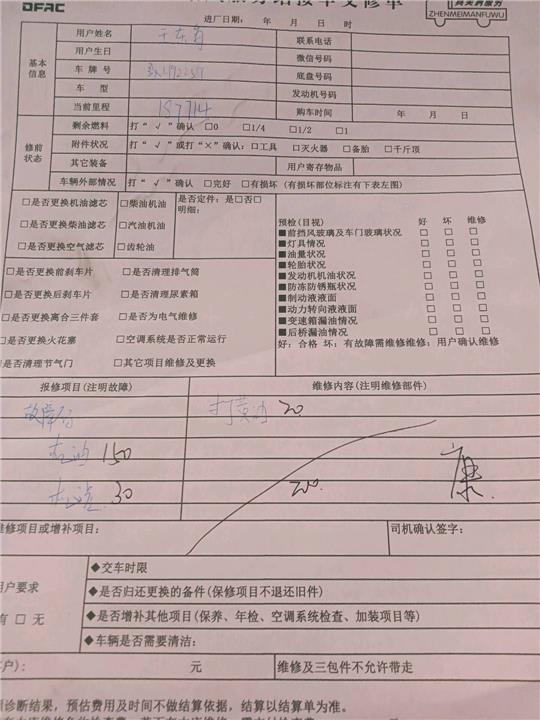 DFAC
ZHENMEIMANFUWU
进厂日期： 年 月 日 时
基本信息
用户姓名 联系电话
用户生日 微信号码
车牌号 底盘号码
车 型 发动机号码
当前里程 157714 购车时间 年 月 日
修前状态
剩余燃料 打“√”确认 □0 □1/4 □1/2 □1
附件状况 打“√”或打“×”确认：□工具 □灭火器 □备胎 □千斤顶
其它装备 用户寄存物品
车辆外部情况 打“√”确认 □完好 □有损坏（有损坏部位标注有下表左图）
□是否更换机油滤芯 □柴油机油 是否定件：是□否□
明细：
□是否更换柴油滤芯 □汽油机油
□是否更换空气滤芯 □齿轮油
□是否更换前刹车片 □是否清理排气筒
□是否更换后刹车片 □是否清理尿素箱
□是否更换离合三件套 □是否为电气维修
□是否更换火花塞 □空调系统是否正常运行
□是否清理节气门 □其它项目维修及更换
预检(目视) 好 坏 维修
■前挡风玻璃及车门玻璃状况 □ □ □
■灯具情况 □ □ □
■油量状况 □ □ □
■轮胎状况 □ □ □
■发动机机油状况 □ □ □
■防冻防锈瓶状况 □ □ □
■制动液液面 □ □ □
■动力转向液液面 □ □ □
■变速箱漏油情况 □ □ □
■后桥漏油情况 □ □ □
好：合格 坏：有故障需维修维修：用户确认维修
报修项目(注明故障) 维修内容(注明维修部件)
故障灯 打黄油 20
机油 150
机滤 30 200.
康
维修项目或增补项目： 司机确认签字：
用户要求
有 □ 无
◆交车时限
◆是否归还更换的备件(保修项目不退还旧件)
◆是否增补其他项目(保养、年检、空调系统检查、加装项目等)
◆车辆是否需要清洁：
户)： 元 维修及三包件不允许带走
诊断结果，预估费用及时间不做结算依据，结算以结算单为准。